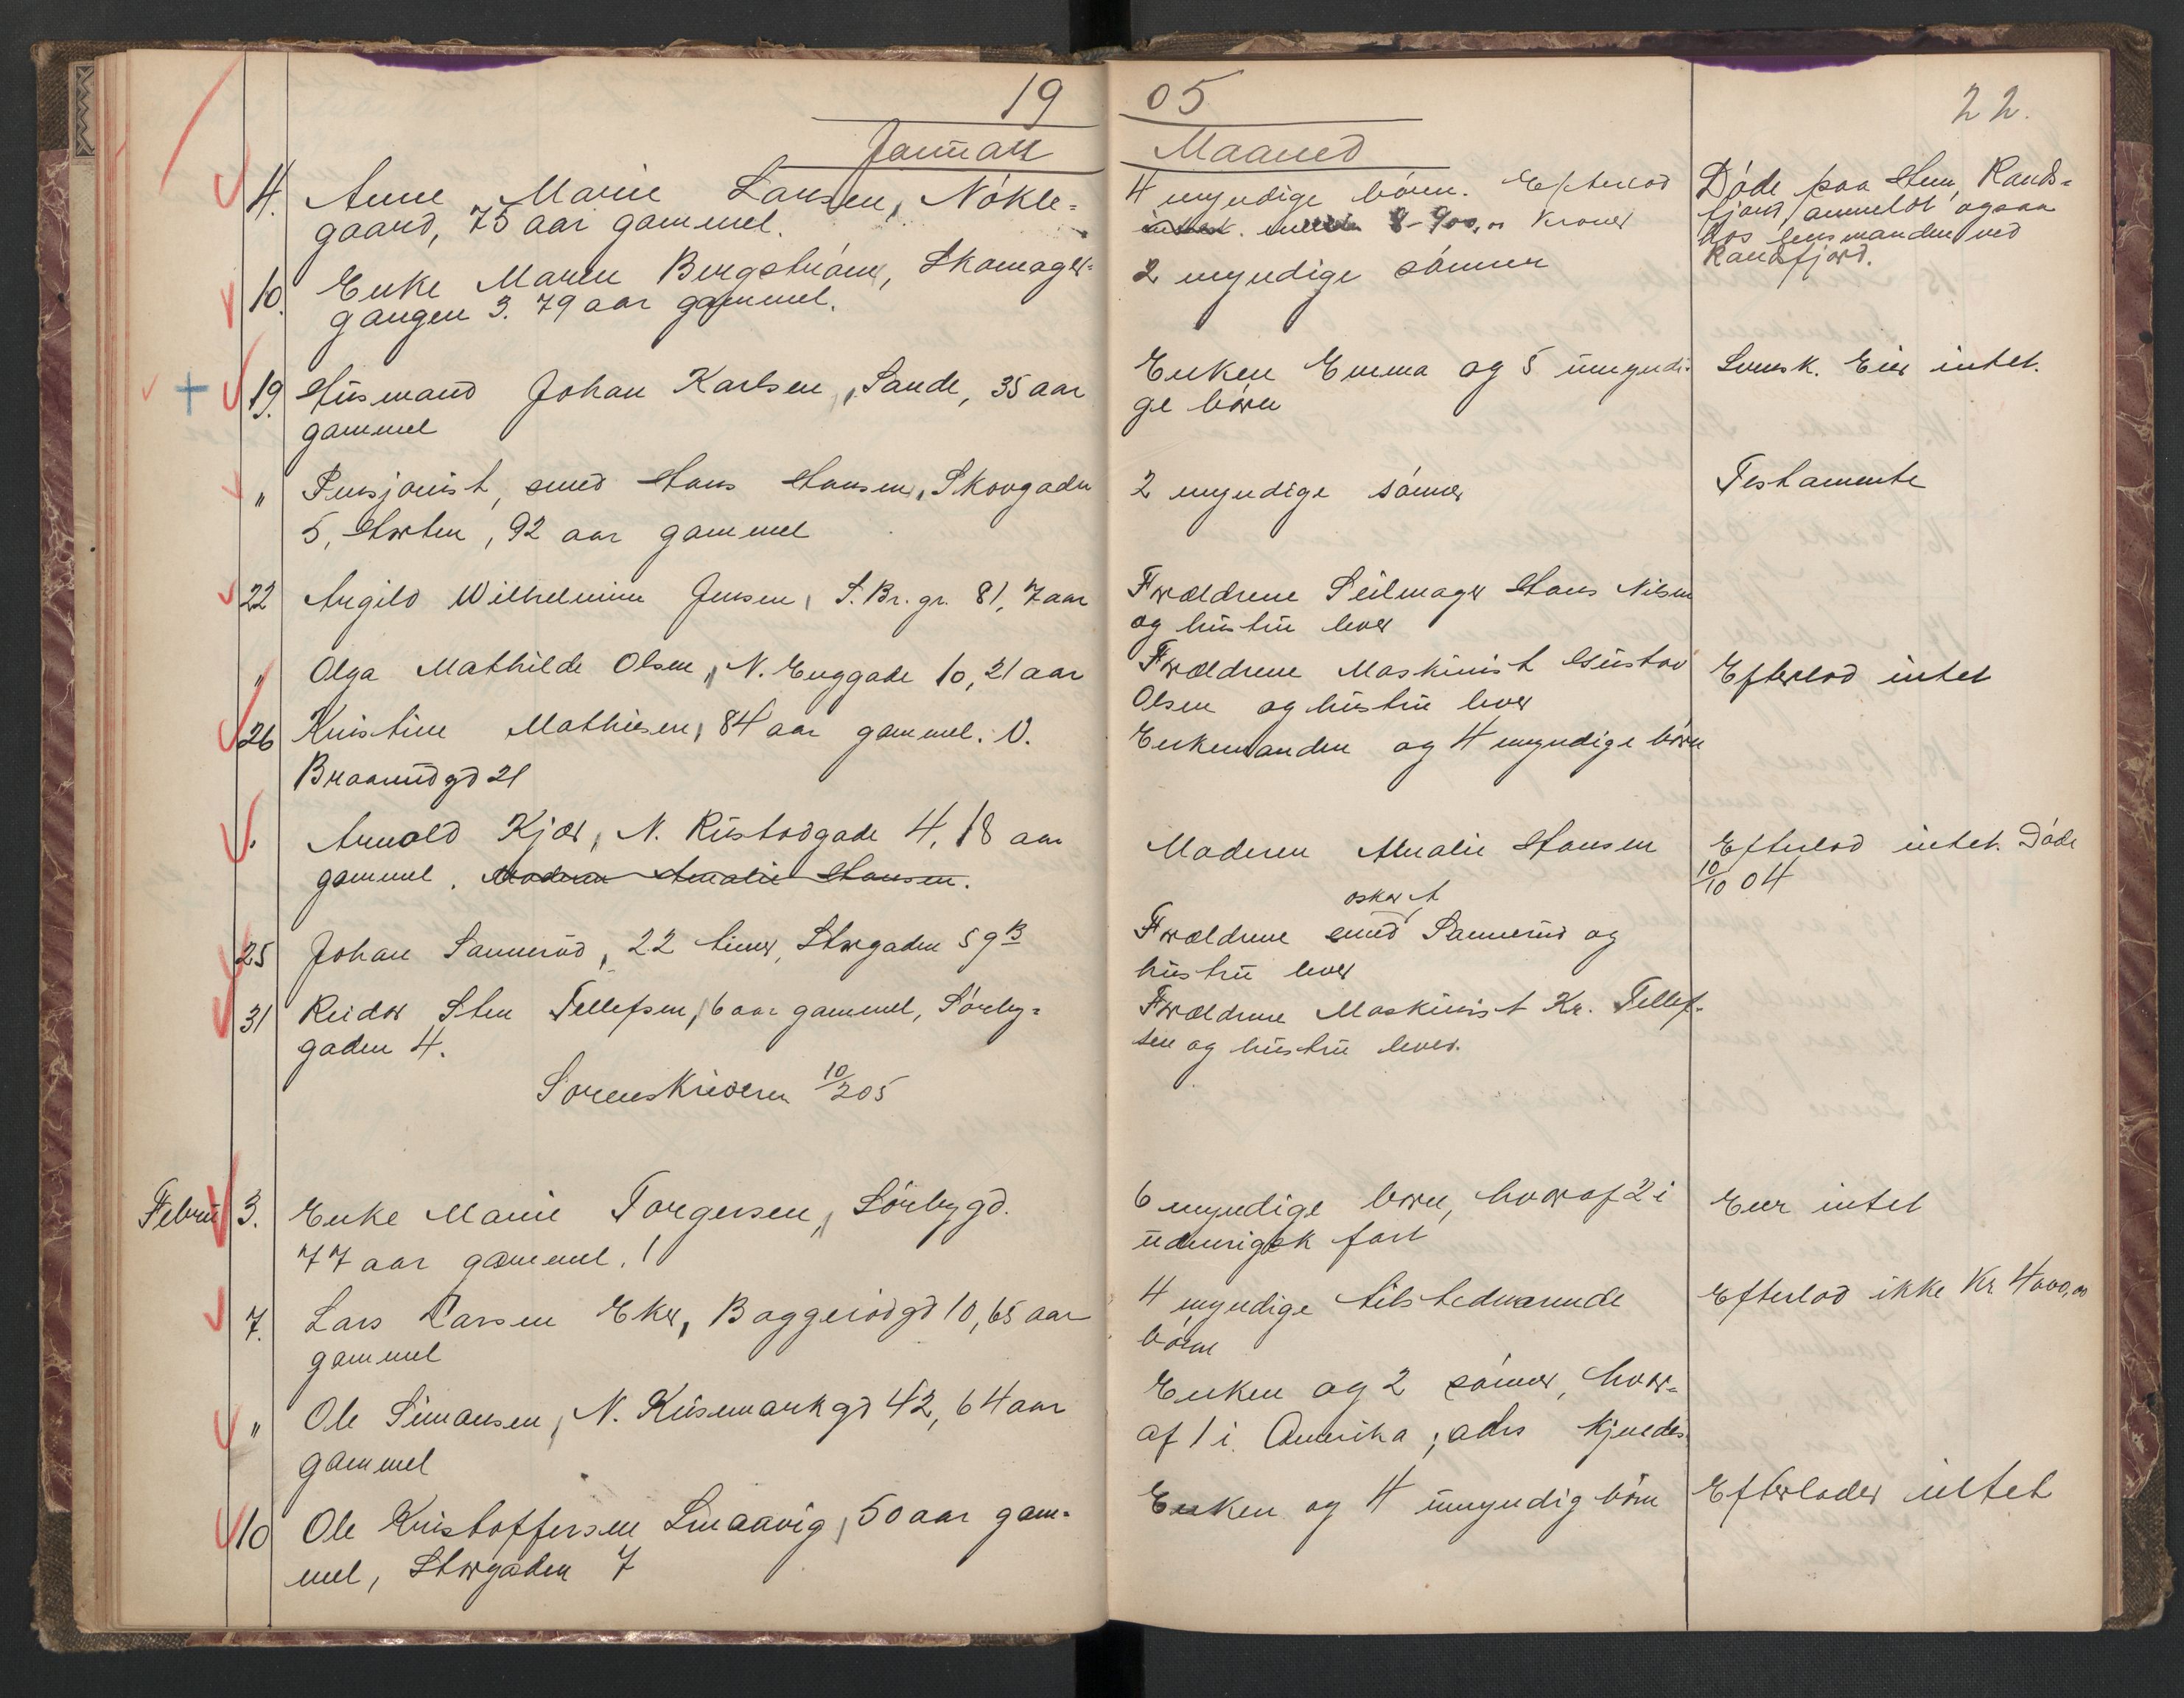 19 05
22.
Januar Maaned
4. Anne Marie Larsen, Nökle-
gaard, 75 aar gammel.
4 myndige börn. Efterlod
intet. 8-900,00 kroner
Döde paa Hen, Rands-
fjord, anmeldt ogsaa
hos lensmanden ved
Randsfjord.
10. Enke Maren Bergström, Skomager-
gangen 3. 79 aar gammel.
2 myndige sönner
19. Husmand Johan Karlsen, Sande, 35 aar
gammel
Enken Emma og 5 umyndi-
ge börn
Svensk. Eier intet.
" Pensjonist, smed Hans Hansen, Skovgaden
5, Horten, 92 aar gammel
2 myndige sönner
Testamente
22 Argild Wilhelmine Jensen, S. Br. gr. 81, 7 aar
Forældrene Seilmager Hans Nilsen
og hustru lever
" Olga Mathilde Olsen, N. Enggade 10, 21 aar
Forældrene Maskinist Gustav
Olsen og hustru lever
Efterlod intet
26 Kristine Mathisen, 84 aar gammel. V.
Braarudgd 21
Enkemanden og 4 myndige börn
" Arnold Kjær, N. Rustadgade 4, 18 aar
gammel. Moderen Amalie Hansen.
Moderen Amalie Hansen
Efterlod intet. Döde
10/10 04
25 Johan Sannerud, 22 timer, Storgaden 59 B
oskar A
Forældrene smed Sannerud og
hustru lever
31 Reidar Sten Tellefsen, 6 aar gammel, Sörby-
gaden 4.
Forældrene Maskinist Kr. Tellef-
sen og hustru lever.
Sorenskriveren 10/2 05
Febru 3. Enke Marie Torgersen, Sörbygd.
77 aar gammel.
6 myndige börn, hvoraf 2 i
udenrigsk fart
Eier intet
7. Lars Larsen Eker, Baggerödgd 10, 65 aar
gammel
4 myndige tilstedværende
börn
Efterlod ikke Kr 4000,00
" Ole Simonsen, N. Kusemarkgd 42, 64 aar
gammel
Enken og 2 sönner, hvor-
af 1 i Amerika; adrs kjendes.
10 Ole Kristoffersen Smaavig, 50 aar gam-
mel, Storgaden 7
Enken og 4 umyndig börn
Efterlader intet